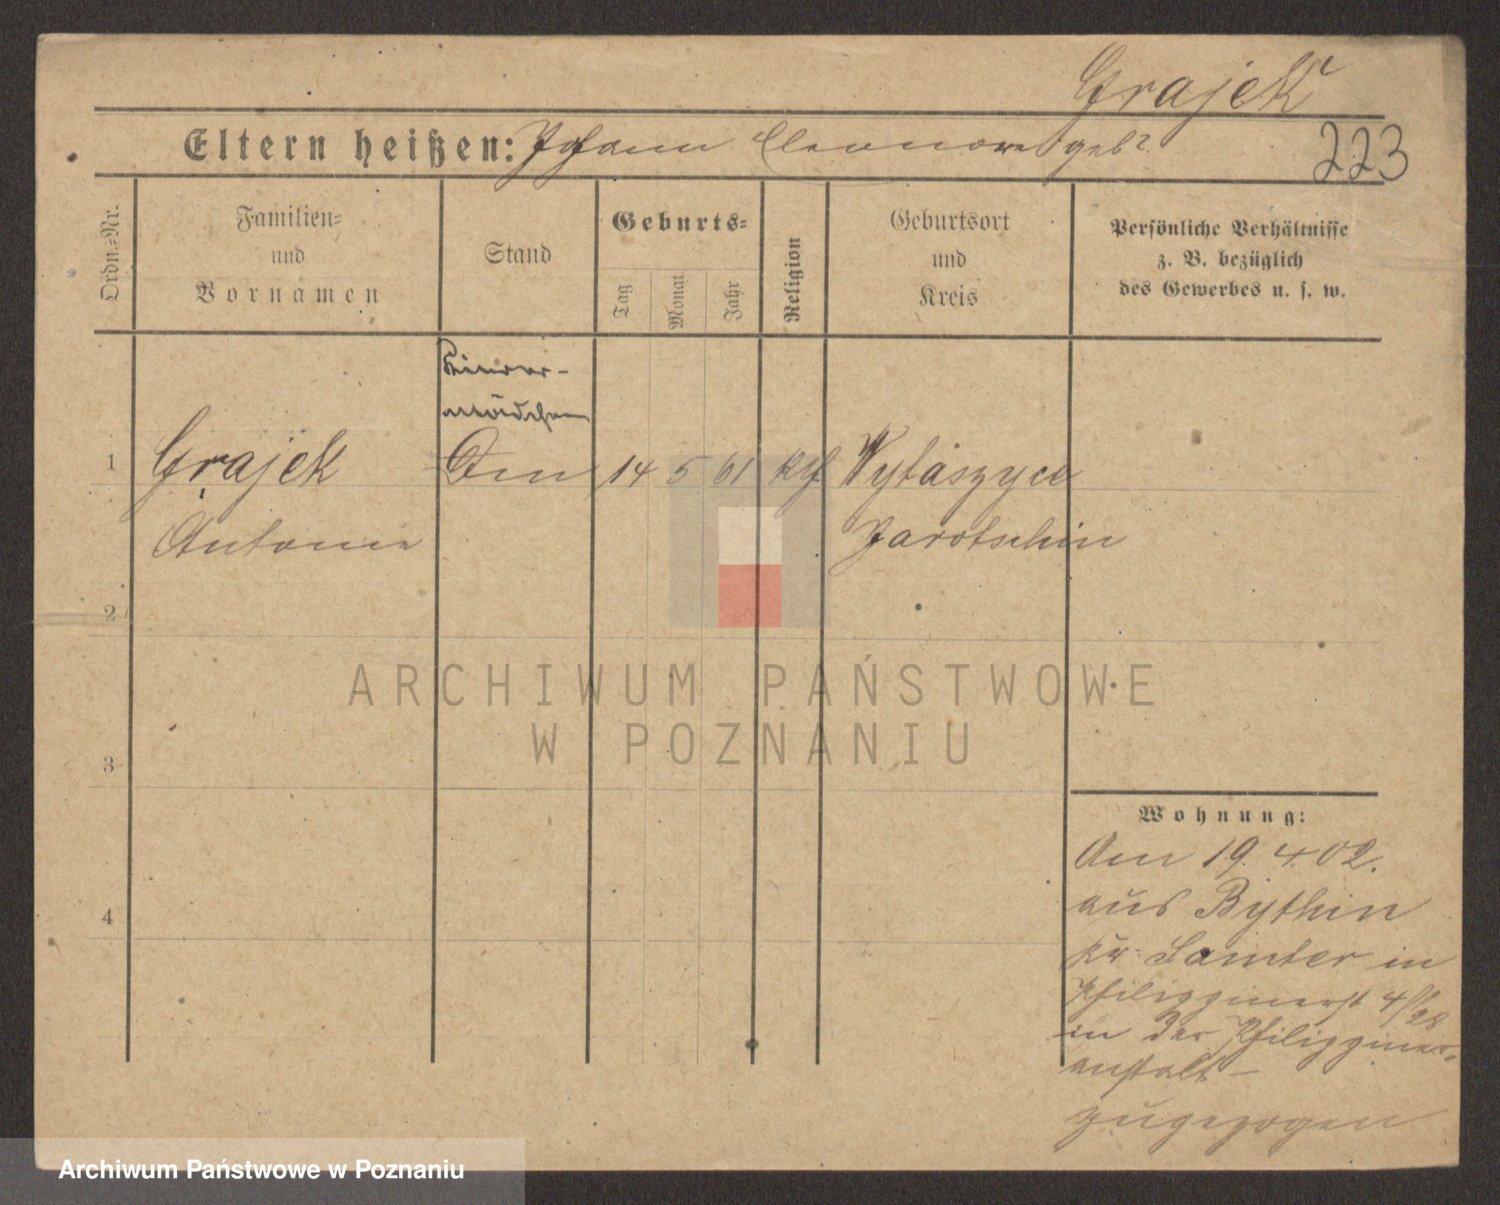 Grajek
Eltern heißen: Johann Eleonore geb.
223
Ordn.-Nr.
Familien-
und
Vornamen
Stand
Geburts-
Tag
Monat
Jahr
Religion
Geburtsort
und
Kreis
Persönliche Verhältnisse
z. B. bezüglich
des Gewerbes u. s. w.
mädchen
1 Grajek 14 5 61 kth Wytaszyce
Antonie Jarotschin
2
3
4
Wohnung:
Am 19. 4. 02.
aus Bythin
Kr. Samter in
Philippinerst 4/
in der Philippiner-
anstalt -
zugezogen
ARCHIWUM PAŃSTWOWE
W POZNANIU
Archiwum Państwowe w Poznaniu